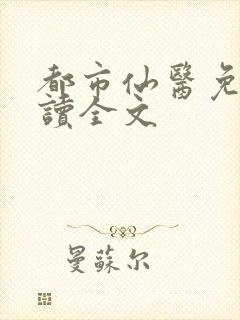 都市仙醫免
讀全文
曼蘇尔